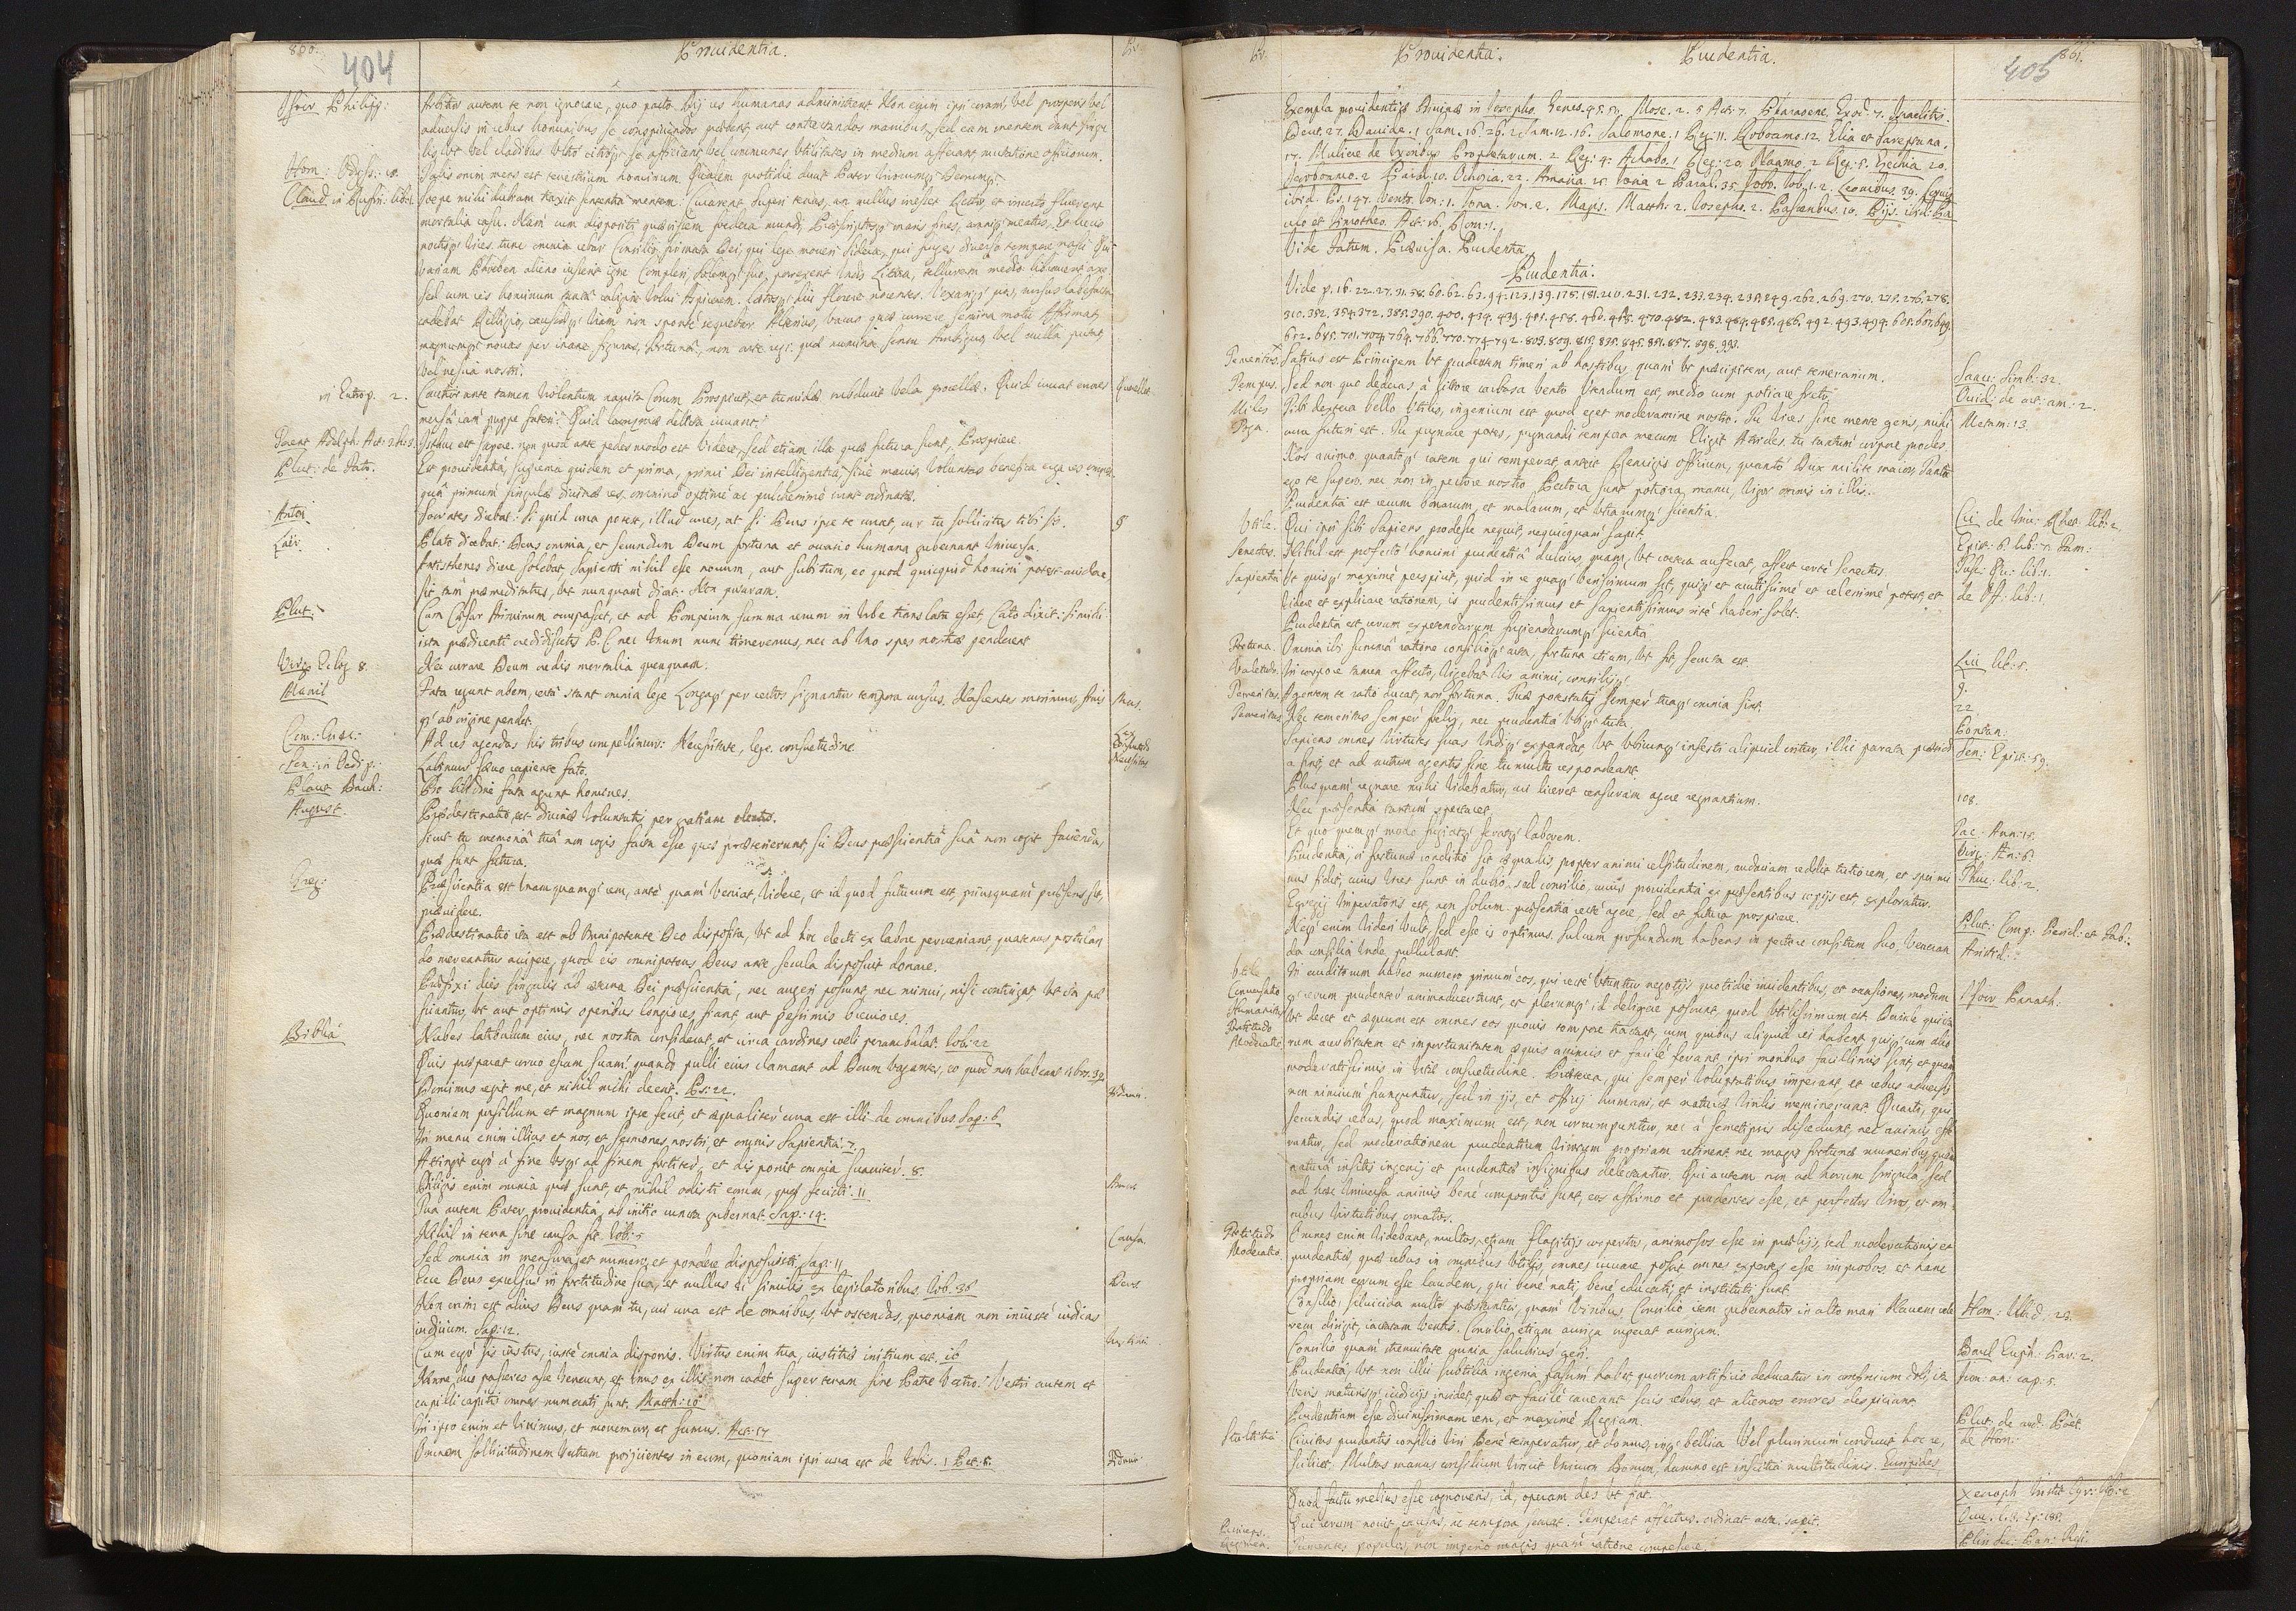 860.
404
Prouidentia.
Pr.
Isocr. Philipp:
Arbitror autem te non ignorare, quo pacto Dij res humanas administrent. Non enim ipsi coram vel prosperis vel
aduersis in rebus hominibus se conspiciendos praebent, aut contrectandos manibus, sed eam mentem dant singu
lis, vt vel cladibus vltrò citròq; se afficiant, vel communes vtilitates in medium afferant mutatione officiorum.
Hom: Odyss: 18.
Talis enim mens est terrestrium hominum. Qualem quotidie ducit Pater virorumq; Deorumq;.
Claud. in Ruffin: lib: 1.
Saepe mihi dubiam traxit sententia mentem: Curarent Superi terras, an nullus inesset Rector, et incerto fluerent
mortalia casu. Nam cum dispositi quaesissem foedera mundi, Praescriptosq; maris fines, annisq; meatus, Et lucis
noctisq; vices, tunc omnia rebar Consilio firmata Dei, qui lege moueri Sidera, qui fruges diuerso tempore nasci, Qui
variam Phoeben alieno iusserit igne Compleri, Solemq; suo, porrexerit vndis Littora, tellurem medio librauerit axe.
Sed cum res hominum tanta caligine volui Aspicerem, laetosq; diu florere nocentes, Vexariq; pios, rursus labefacta
cadebat Relligio, causaeq; viam non sponte sequebar Alterius, vacuo quae currere semina motu Affirmat,
magnumq; nouas per inane figuras, Fortunâ, non arte regi: quae numina sensu Ambiguo, vel nulla putat,
vel nescia nostri.
in Eutrop. 2.
Cautior ante tamen violentum nauita Corum Prospicit, et tumidae subducit vela procellae. Quid iuuat errorem
Querelae.
mersâ iam puppe fateri? Quid lacrymae delicta iuuant?
Terent. Adelph. Act: 3.
Istuc est sapere, non quod ante pedes modo est videre, sed etiam illa quae futura sunt, Prospicere.
Plut: de Fato.
Est prouidentia, suprema quidem et prima, primi Dei intelligentia siue mauis, voluntas benefica erga res omnes,
quâ primùm singulae diuinae res, omnino optimè ac pulcherrimè sunt ordinatae.
Anton.
Socrates dicebat: Si quid una potest, illud unes, at si Deus ipse te curat, cur tu sollicitus tibi sis.
Laër.
Plato dicebat: Deus omnia, et secundum Deum fortuna et occasio humana gubernant Vniuersa.
Antisthenes dicere solebat, sapienti nihil esse nouum, aut subitum, eo quod quicquid homini potest accidere,
sic tàm praemeditatus, vt nunquam dicat: Non putaram.
Plut:
Cum Caesar Ariminum occupasset, et ad Pompeium summa rerum in Vrbe translata esset, Cato dixit: Si mihi
ista praedicenti credidissetis P. C. nec Vnum nunc timeremus, nec ab Vno spes nostrae penderent
Virg: Eclog 8.
Nec curare Deum credis mortalia quenquam.
Manil
Fata regunt orbem, certâ stant omnia lege Longaq; per certos signantur tempora cursus. Nascentes morimur, finis
Mors.
q; ab origine pendet.
Com: Curae:
Ad res agendas his tribus compellimur: Necessitate, lege, consuetudine
Lex
Consuetudo
Necessitas
Sen: in Oedip:
Labimur saeuo rapiente fato.
Plaut. Bach:
Pro libidine fata agunt homines.
August.
Praedestinatio, est diuinae Voluntatis per gratiam electio.
Sicut tu memoriâ tuâ non cogis facta esse quae praeterierunt, sic Deus praescientiâ suâ non cogit facienda,
quae sunt futura.
Greg:
Praescientia est vnamquamq; rem, antè quàm veniat, videre, et id quod futurum est, priusquàm praesens sit,
praeuidere.
Praedestinatio ita est ab omnipotente Deo disposita, vt ad hoc electi ex labore perueniant, quatenus postulan
do mereantur accipere, quod eis omnipotens Deus ante secula disposuit donare.
Praefixi dies singulis ab aeterna Dei praescientia, nec augeri possunt, nec minui, nisi contingat, vt ita prae
sciantur, vt aut optimis operibus longiores fiant, aut pessimis breuiores.
Biblia
Nubes latibulum eius, nec nostra considerat, et circa cardines coeli perambulat. Iob: 22
Quis praeparat coruo escam suam, quando pulli eius clamant ad Deum vagantes, eo quod non habeant cibos. 38
Dominus regit me, et nihil mihi deerit. Ps: 22.
Quoniam pusillum et magnum ipse fecit, et aequaliter cura est illi de omnibus. Sap: 6
In manu enim illius et nos, et sermones nostri, et omnis Sapientia. 7.
Attingit ergò à fine vsq; ad finem fortiter, et disponit omnia suauiter. 8.
Diligis enim omnia quae sunt, et nihil odisti eorum, quae fecisti. 11
Tua autem Pater prouidentia, ab initio cuncta gubernat. Sap: 14.
Nihil in terra sine causa fit. Iob: 5
Causa.
Sed omnia in mensura, et numero, et pondere disposuisti. Sap: 11
Ecce Deus excelsus in fortitudine sua, et nullus ei similis ex legislatoribus. Iob: 36
Deus.
Non enim est alius Deus quam tu, cui cura est de omnibus, vt ostendas, quoniam non iniustè iudicas
iudicium. Sap: 12.
Cum ergò sis iustus, iustè omnia disponis. Virtus enim tua, iustitiae initium est. ib
Nonne duo passeres asse veneunt, et vnus ex illis non cadet super terram sine Patre vestro? Vestri autem et
capilli capitis omnes numerati sunt. Matth: 10
In ipso enim et viuimus, et mouemur, et sumus. Act: 17
Omnem sollicitudinem vestram proijcientes in eum, quoniam ipsi cura est de vobis. 1 Pet: 5.
Pr.
Prouidentia.
Prudentia.
861.
405
Exempla prouidentiae Diuinae in Iosepho, Genes. 45. 50. Mose. 2. 5 Act: 7. Pharaone. Exod. 7. Israelitis.
Deut. 27. Dauide. 1 Sam. 16. 26. 2 Sam. 12. 16. Salomone. 1 Reg: 11. Roboamo. 12. Elia et Sareptana.
17. Muliere de Vxoribus Prophetarum. 2 Reg: 4. Achabo. 1 Reg: 20. Naamo. 2 Reg: 5. Ezechia 20.
Ieroboamo. 2 Paral. 10. Ochozia. 22. Amazia. 25. Iosia 2 Paral. 35. Iobo. Iob. 1. 2. Leonibus. 39. Coruis
ibid. Ps. 147. Vento. Ion: 1. Iona. Ion. 2. Magis. Matth: 2. Iosepho. 2. Passeribus. 10. Pijs. ibid. Pa
ulo et Timotheo. Act: 16. Rom: 1.
Vide Fatum. Praeuisa. Prudentia.
Prudentia.
Vide p. 16. 22. 27. 31. 58. 60. 62. 63. 94. 123. 139. 175. 181. 210. 231. 232. 233. 234. 235. 249. 262. 269. 270. 275. 276. 278.
310. 352. 354. 372. 385. 390. 400. 434. 439. 455. 458. 460. 465. 470. 482. 483. 484. 485. 486. 492. 493. 494. 605. 607. 649.
652. 695. 701. 704. 764. 766. 770. 774. 792. 803. 809. 815. 835. 845. 851. 857. 898. 993.
Temeritas.
Satius est Principem vt prudentem timeri ab hostibus, quàm vt praecipitem, aut temerarium.
Tempus.
Sed non quo dederas, à littore carbasa vento Vtendum est, medio cum potiare freto.
Ouid: de art: am: 2.
Miles
Tibi dextera bello Vtilis, ingenium est quod eget moderamine nostro. Tu vires sine mente geris, mihi
Metam: 13.
Pugna.
cura futuri est. Tu pugnare potes, pugnandi tempora mecum Eligit Atrides. tu tantùm corpore prodes,
Nos animo, quantoq; ratem qui temperat, anteit Remigis officium, quantò Dux milite maior, Tantò
ego te supero. nec non in pectore nostro Pectora sunt potiora manu, vigor omnis in illis.
Prudentia est rerum bonarum, et malarum, et vtrarumq; scientia.
Vtile.
Qui ipse sibi sapiens, prodesse nequit, nequicquam sapit.
Senectus.
Nihil est profecto homini prudentiâ dulcius, quam, vt caetera auferat, affert certè Senectus.
Tusc: Qu: lib: 1.
Sapientia
Vt quisq; maximè perspicit, quid in re quaq; verissimum sit, quiq; et acutissimè et celerrimè potest, et
de Off: lib: 1
videre et explicare rationem, is prudentissimus et sapientissimus ritè haberi solet.
Prudentia est rerum expetendarum fugiendarumq; scientia
Fortuna.
Omnia ibi summâ ratione consilioq; acta, fortuna etiam, vt fit, secuta est.
Liu lib: 5.
Valetudo.
In corpore tamen affecto, vigebat vis animi, consilijq;
9.
Temeritas.
Agentem te ratio ducat, non fortuna. Tuae potestatis semper tuaq; omnia sint.
22
Temeritas
Nec temeritas semper felix, nec prudentia vbiq; tuta.
Pontan.
Sapiens omnes virtutes suas vndiq; expandat, vt vbicunq; infesti aliquid oritur, illic parata praesidi
Sen: Epist: 59.
a sint, et ad nutum regentis sine tumultu respondeant.
Plus quam regnare mihi videbatur, cui liceret censuram agere regnantium.
108.
Nec praesentia tantùm spectaret
Tac: Ann: 15.
Et quo quemq; modo fugiatq; feratq; laborem.
Virg: An: 6.
Prudentia, si fortunae conditio sit aequalis, propter animi celsitudinem, audaciam reddit tutiorem, et spei mi
Thuc: lib: 2.
nus fidit, cuius vires sunt in dubio, sed consilio, cuius prouidentia ex praesentibus copijs est, exploratior.
Egregij Imperatoris est, non solùm praesentia rectè agere, sed et futura prospicere.
Plut: Comp: Pericl: et Fab:
Neq; enim videri vult, sed esse is optimus. Sulcum profundum habens in pectore consitum suo, veneran
Aristid:
da consilia vnde pullulant.
Vtile
In eruditorum habeo numero primùm eos, qui rectè vtuntur negotijs quotidie incidentibus, et occasiones, modum
Isocr Panath:
Conuersatio
q; rerum prudenter animaduertunt, et plerumq; id deligere possunt, quod vtilissimum est. Deinde qui ita
Humanitas
vt decet et aequum est omnes eos quouis tempore tractant, cum quibus aliquid rei habent, quiq; cum alio
Fortitudo
rum acerbitatem et importunitatem aequis animis et facilè ferant, ipsi moribus facillimis sunt, et quàm
Moderatio
moderatissimis in victûs consuetudine. Praeterea, qui semper voluptatibus imperant, et rebus aduersis
non nimiùm franguntur, sed in ijs, et officij humani, et naturae virilis meminerunt. Quartò, qui
secundis rebus, quod maximum est, non corrumpuntur, nec à semetipsis discedunt, nec animis effe
runtur, sed moderationem prudentium virorum propriam retinent nec magis fortunae muneribus, quàm
naturâ insitis ingenij et prudentiae insignibus delectantur. Qui autem non ad horum singula, sed
ad haec vniuersa animis benè compositis sunt, eos affirmo et prudentes esse, et perfectos viros, et om
nibus virtutibus ornatos.
Fortitudo
Omnes enim videbant, multos, etiam flagitijs coopertos, animosos esse in praelijs, sed moderationis et
Moderatio
prudentiae, quae rebus in omnibus vtilis, omnes iuuare possit, omnes expertes esse improbos, et hanc
propriam eorum esse laudem, qui benè nati, benè educati, et instituti sunt.
Consilio siluicida multò praestantior, quàm viribus. Consilio item gubernator in alto mari Nauem cele
Hom: Iliad. 23.
rem dirigit, iactatam ventis. Consilio etiam auriga superat aurigam.
Consilio quàm strenuitate omnia salubrius geri.
Prudentia, vt non illi subtilia ingenia passim habet quorum artificio deducatur in confinium doli, ita
veris maturisq; iudicijs incidet, quae et facilè caueant suis rebus, et alienos errores despiciant.
Prudentiam esse diuinissimam rem, et maximè Regiam.
Plut: de aud: Poët.
Stultitia
Ciuitas prudentis consilio viri Benè temperatur, et domus, inq; bellica Vel plurimùm conducit hoc re,
de Hom:
scilicet. Multas manus consilium vincit vnicum Bonum, damno est inscitia multitudinis. Euripides
Quod factu melius esse cognoueris, id operam des vt fiat.
Xenoph. Instit. Cyr: lib: 2.
Qui rerum nouit causas, ac tempora seruat. Temperat affectus, ordinat acta, sapit.
Princeps.
Regimen.
Tumentes populos, non imperio magis quàm ratione compescere.